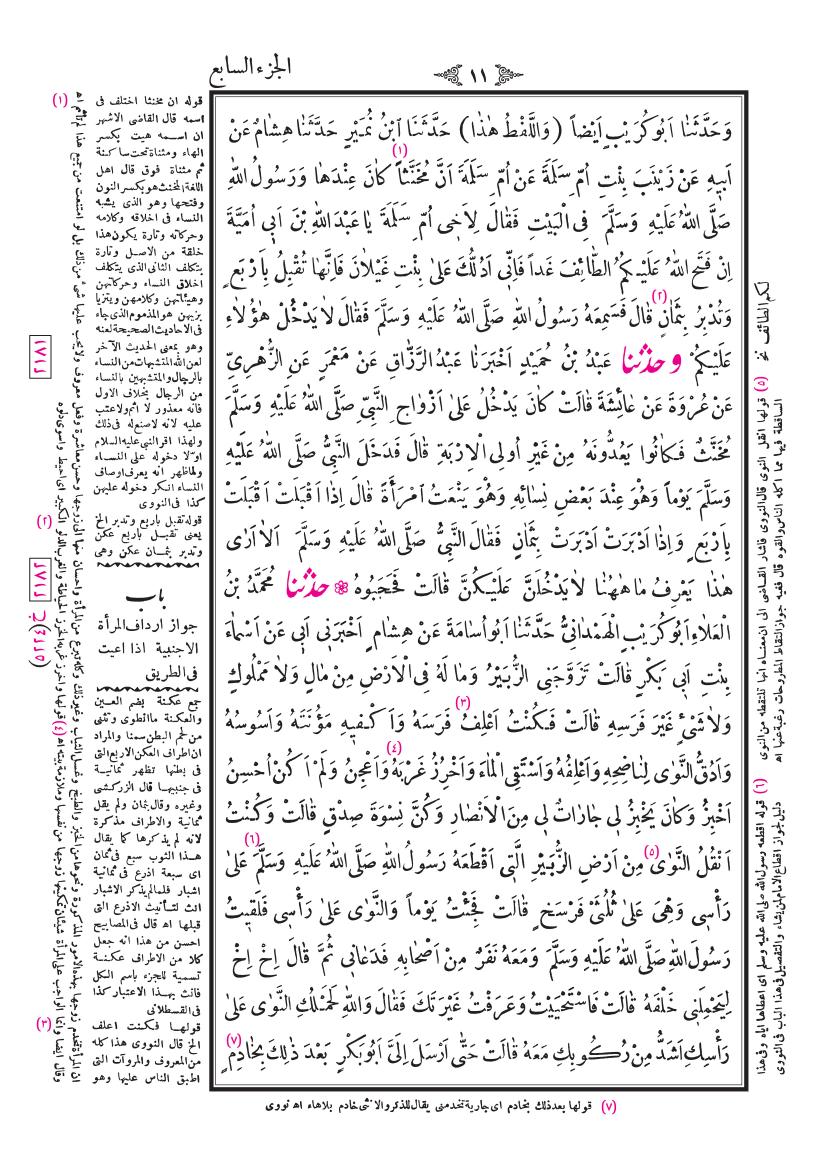 الجزء السابع
١١
وَحَدَّثَنَا اَبُوكُرَيْبٍ اَيْضاً (وَاللَّفْظُ هٰذَا) حَدَّثَنَا ابْنُ نُمَيْرٍ حَدَّثَنَا هِشَامٌ عَنْ
اَبِيهِ عَنْ زَيْنَبَ بِنْتِ اُمِّ سَلَمَةَ عَنْ اُمِّ سَلَمَةَ اَنَّ مُخَنَّثاً (١) كَانَ عِنْدَهَا وَرَسُولُ اللهِ
صَلَّى اللهُ عَلَيْهِ وَسَلَّمَ فِى الْبَيْتِ فَقَالَ لِاَخِى اُمِّ سَلَمَةَ يَا عَبْدَ اللهِ بْنَ اَبِى اُمَيَّةَ
اِنْ فَتَحَ اللهُ عَلَيْكُمُ الطَّائِفَ غَداً فَاِنِّى اَدُلُّكَ عَلىٰ بِنْتِ غَيْلَانَ فَاِنَّهَا تُقْبِلُ بِاَرْبَعٍ
وَتُدْبِرُ بِثَمَانٍ (٢) قَالَ فَسَمِعَهُ رَسُولُ اللهِ صَلَّى اللهُ عَلَيْهِ وَسَلَّمَ فَقَالَ لَا يَدْخُلْ هٰؤُلَاءِ
عَلَيْكُمْ وحَدَّثَنَا عَبْدُ بْنُ حُمَيْدٍ اَخْبَرَنَا عَبْدُ الرَّزَّاقِ عَنْ مَعْمَرٍ عَنِ الزُّهْرِىِّ
عَنْ عُرْوَةَ عَنْ عَائِشَةَ قَالَتْ كَانَ يَدْخُلُ عَلىٰ اَزْوَاجِ النَّبِىِّ صَلَّى اللهُ عَلَيْهِ وَسَلَّمَ
مُخَنَّثٌ فَكَانُوا يَعُدُّونَهُ مِنْ غَيْرِ اُولِى الْاِرْبَةِ قَالَ فَدَخَلَ النَّبِىُّ صَلَّى اللهُ عَلَيْهِ
وَسَلَّمَ يَوْماً وَهُوَ عِنْدَ بَعْضِ نِسَائِهِ وَهُوَ يَنْعَتُ امْرَأَةً قَالَ اِذَا اَقْبَلَتْ اَقْبَلَتْ
بِاَرْبَعٍ وَاِذَا اَدْبَرَتْ اَدْبَرَتْ بِثَمَانٍ فَقَالَ النَّبِىُّ صَلَّى اللهُ عَلَيْهِ وَسَلَّمَ اَلَا اَرٰى
هٰذَا يَعْرِفُ مَا هٰهُنَا لَا يَدْخُلَنَّ عَلَيْكُنَّ قَالَتْ فَحَجَبُوهُ ❁ حَدَّثَنَا مُحَمَّدُ بْنُ
الْعَلَاءِ اَبُوكُرَيْبٍ الْهَمْدَانِىُّ حَدَّثَنَا اَبُواُسَامَةَ عَنْ هِشَامٍ اَخْبَرَنِى اَبِى عَنْ اَسْمَاءَ
بِنْتِ اَبِى بَكْرٍ قَالَتْ تَزَوَّجَنِى الزُّبَيْرُ وَمَا لَهُ فِى الْاَرْضِ مِنْ مَالٍ وَلَا مَمْلُوكٍ
وَلَا شَىْءٍ غَيْرَ فَرَسِهِ قَالَتْ فَكُنْتُ اَعْلِفُ (٣) فَرَسَهُ وَاَكْفِيهِ مَؤُنَتَهُ وَاَسُوسُهُ
وَاَدُقُّ النَّوٰى لِنَاضِحِهِ وَاَعْلِفُهُ وَاَسْتَقِى الْمَاءَ وَاَخْرُزُ غَرْبَهُ (٤) وَاَعْجِنُ وَلَمْ اَكُنْ اُحْسِنُ
اَخْبِزُ وَكَانَ يَخْبِزُ لِى جَارَاتٌ لِى مِنَ الْاَنْصَارِ وَكُنَّ نِسْوَةَ صِدْقٍ قَالَتْ وَكُنْتُ
اَنْقُلُ النَّوٰى (٥) مِنْ اَرْضِ الزُّبَيْرِ الَّتِى اَقْطَعَهُ (٦) رَسُولُ اللهِ صَلَّى اللهُ عَلَيْهِ وَسَلَّمَ عَلىٰ
رَأْسِى وَهِىَ عَلىٰ ثُلُثَىْ فَرْسَخٍ قَالَتْ فَجِئْتُ يَوْماً وَالنَّوٰى عَلىٰ رَأْسِى فَلَقِيتُ
رَسُولَ اللهِ صَلَّى اللهُ عَلَيْهِ وَسَلَّمَ وَمَعَهُ نَفَرٌ مِنْ اَصْحَابِهِ فَدَعَانِى ثُمَّ قَالَ اِخْ اِخْ
لِيَحْمِلَنِى خَلْفَهُ قَالَتْ فَاسْتَحْيَيْتُ وَعَرَفْتُ غَيْرَتَكَ فَقَالَ وَاللهِ لَحَمْلُكِ النَّوٰى عَلىٰ
رَأْسِكِ اَشَدُّ مِنْ رُكُوبِكِ مَعَهُ قَالَتْ حَتَّى اَرْسَلَ اِلَىَّ اَبُوبَكْرٍ بَعْدَ ذٰلِكَ بِخَادِمٍ (٧)
(١) قوله ان مخنثا اختلف فى
اسمه قال القاضى الاشهر
ان اسمه هيت بكسر
الهاء ومثناة تحت ساكنة
ثم مثناة فوق قال اهل
اللغة المخنث هو بكسر النون
وفتحها وهو الذى يشبه
النساء فى اخلاقه وكلامه
وحركاته وتارة يكون هذا
خلقة من الاصل وتارة
بتكلف الثانى الذى يتكلف
اخلاق النساء وحركاتهن
وهيئاتهن وكلامهن ويتزيا
بزيهن هو المذموم الذى جاء
فى الاحاديث الصحيحة لعنه
وهو بمعنى الحديث الآخر
لعن الله المتشبهات من النساء
بالرجال والمتشبهين بالنساء
من الرجال بخلاف الاول
فانه معذور لا اثم ولا عتب
عليه لانه لا صنع له فى ذلك
ولهذا اقر النبى عليه السلام
اولا دخوله على النساء
ولما ظهر انه يعرف اوصاف
النساء انكر دخوله عليهن
كذا فى النووى
(٢) قوله تقبل باربع وتدبر الخ
يعنى تقبل باربع عكن
وتدبر بثمان عكن وهى
باب
جواز ارداف المرأة
الاجنبية اذا اعيت
فى الطريق
جمع عكنة بضم العين
والعكنة ما انطوى وتثنى
من لحم البطن سمنا والمراد
ان اطراف العكن الاربع التى
فى بطنها تظهر ثمانية
فى جنبيها قال الزركشى
وغيره وقال بثمان ولم يقل
ثمانية والاطراف مذكرة
لانه لم يذكرها كما يقال
هذا الثوب سبع فى ثمان
اى سبعة اذرع فى ثمانية
اشبار فلما لم يذكر الاشبار
انث لتأنيث الاذرع التى
قبلها اه قال فى المصابيح
احسن من هذا انه جعل
كلا من الاطراف عكنة
تسمية للجزء باسم الكل
فانث بهذا الاعتبار كذا
فى القسطلانى
(٣) قولها فكنت اعلف
الخ قال النووى هذا كله
من المعروف والمروآت التى
اطبق الناس عليها وهو
٢١٨١
٢١٨٢
لكم الطائف نخ
(٥) قولها انقل النوى قال النووى فاشار القاضى الى ان معناه انها تلتقطه من النوى
الساقطة فيها مما اكله الناس والقوه قال ففيه جواز التقاط المطروحات رغبة عنها اه
(٦) قوله اقطعه رسول الله صلى الله عليه وسلم اى اعطاها اياه وفى هذا
دليل جواز اقطاع الامام لمن يشاء والتفصيل فى هذا الباب فى النووى
(٧) قولها بعد ذلك بخادم اى جارية تخدمنى يقال للذكر والانثى خادم بلا هاء اه نووى